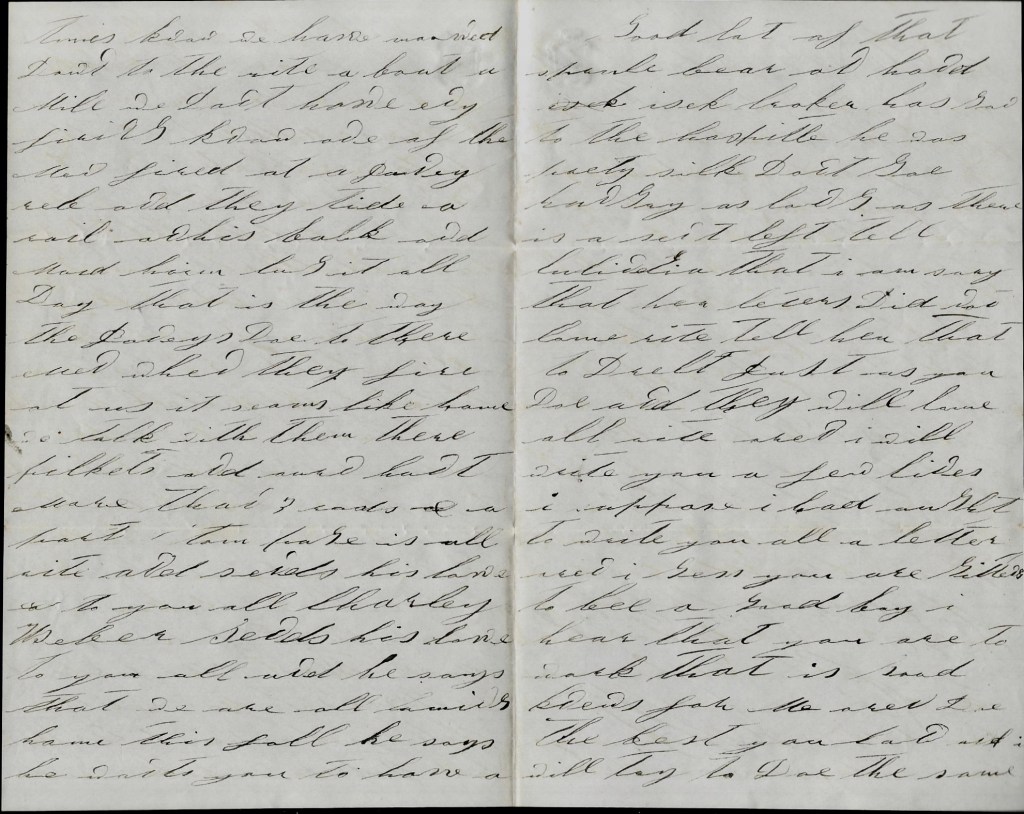 times know we have mooved
Down to the rite a bout a
Mile we Dont have eny
firing know one of the
Men fired at a Joney
reb and they tide a
rail on his back and
Maid him lug it all
Day that is the way
the Joneys Doe to there
Men when they fire
at us it seams like home
to talk with them there
pickets and ours haint
More than 3 rods a
part tom page is all
rite and sends his love
to you all Charley
Weker Sends his love
to you all and he says
that we are all coming
home this fall he says
he wants you to have a
Good lot of that
spruce bear on hand
isek broker has Gon
to the hospittle he was
prety sick Dont Goe
hungry as long as there
is a sent left tell
that i am sory
that her leters Did not
Come rite tell her that
to Direct Just as you
Doe and they will Come
all rite and i will
write you a few lines
i suppose i had aught
to write you all a letter
and i Gess you are Gitting
to bee a Good boy i
hear that you are to
work that is Good
news for Me and Doe
the best you Can and i
will try to Doe the same